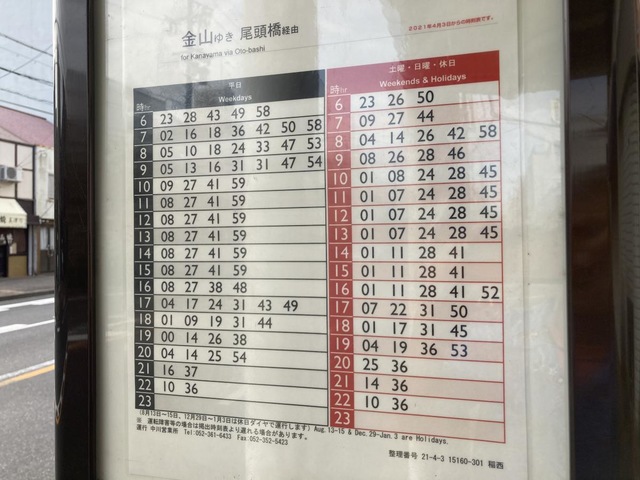 2021年4月3日からの時刻表です。
金山ゆき 尾頭橋経由
for Kanayama via Oto-bashi
平日
Weekdays
土曜・日曜・休日
Weekends & Holidays
時hr
6 23 28 43 49 58
7 02 16 18 36 42 50 58
8 05 10 18 24 33 47 53
9 05 13 16 31 31 47 54
10 09 27 41 59
11 08 27 41 59
12 08 27 41 59
13 08 27 41 59
14 08 27 41 59
15 08 27 41 59
16 08 27 38 48
17 04 17 24 31 43 49
18 01 09 19 31 44
19 00 14 26 38
20 04 14 25 54
21 16 37
22 10 36
23
時hr
6 23 26 50
7 09 27 44
8 04 14 26 42 58
9 08 26 28 46
10 01 08 24 28 45
11 01 07 24 28 45
12 01 07 24 28 45
13 01 07 24 28 45
14 01 11 28 41
15 01 11 28 41
16 01 11 28 41 52
17 07 22 31 50
18 01 17 31 45
19 04 19 36 53
20 25 36
21 14 36
22 10 36
23
(8月13日〜15日、12月29日〜1月3日は休日ダイヤで運行します) Aug.13-15 & Dec.29-Jan.3 are Holidays.
※ 運転障害等の場合は掲出時刻表より遅れる場合があります。
運行 中川営業所 Tel:052-361-6433 Fax:052-352-5423
整理番号 21-4-3 15160-301 稲西